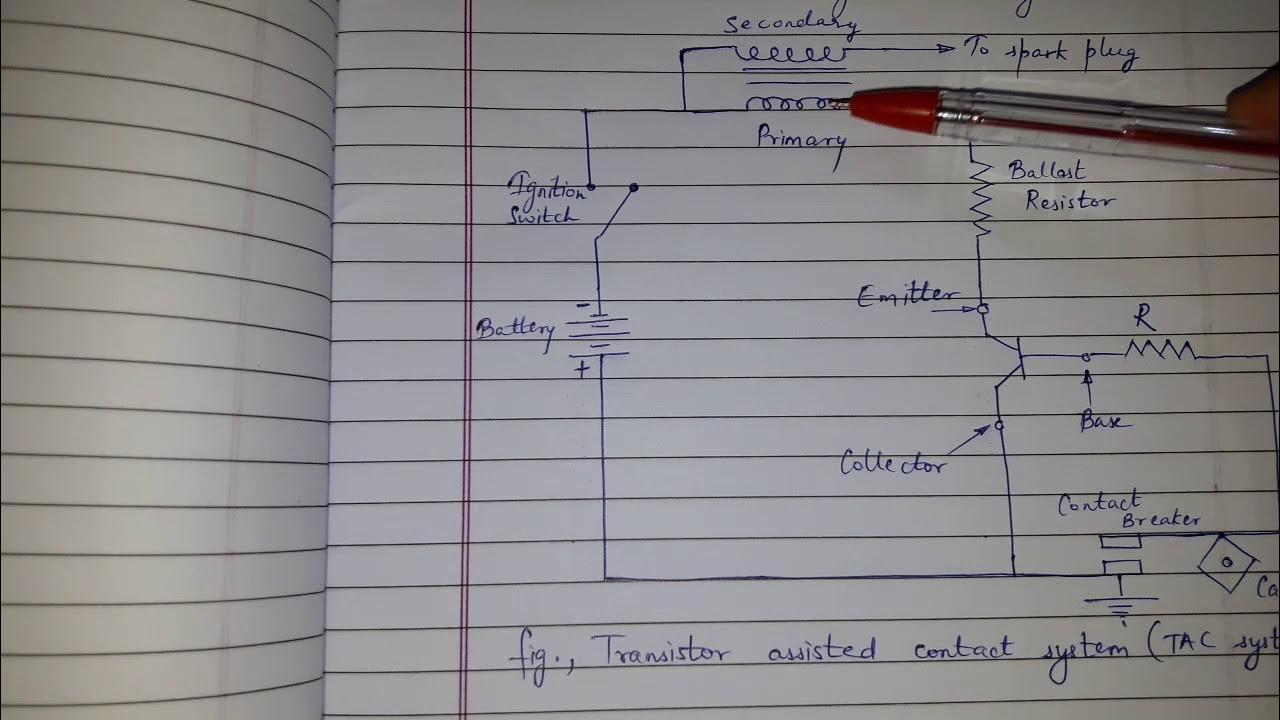 Secondary
To spark plug
Primary
Ignition
Switch
Ballast
Resistor
Emitter
-
Battery
+
R
Base
Collector
Contact
Breaker
Ca
fig., Transistor assisted contact system (TAC syst